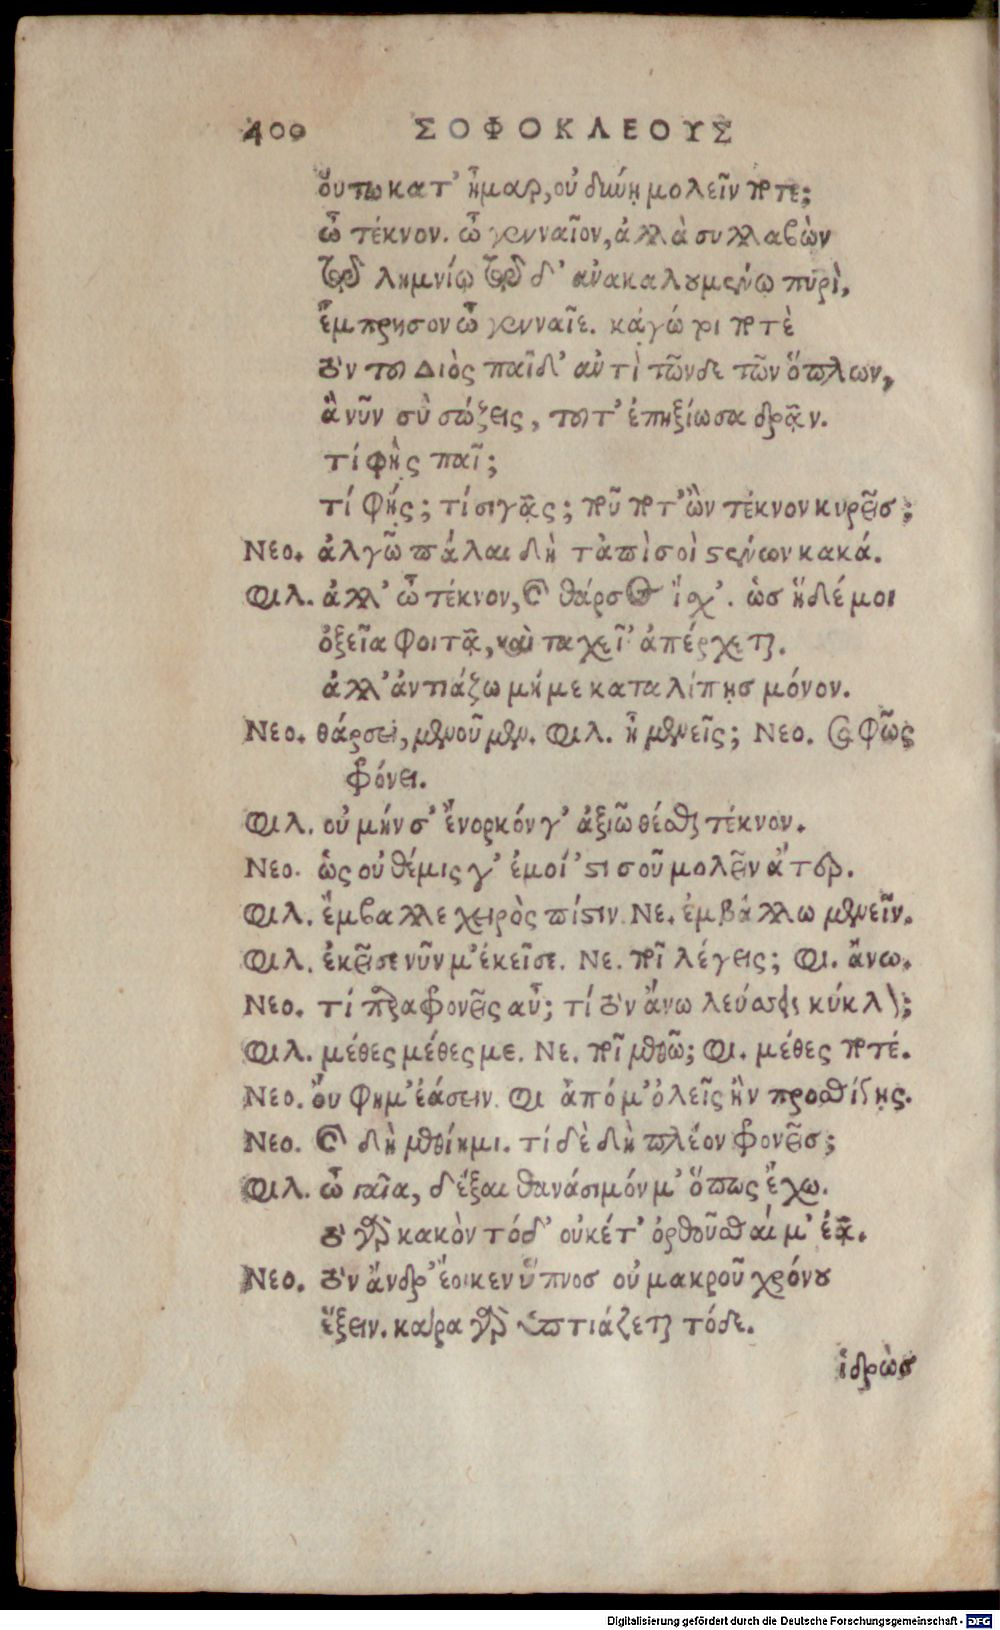 400 ΣΟΦΟΚΛΕΟΥΣ
οὕτω κατ' ἦμαρ, οὐ δύνῃ μολεῖν ποτε;
ὦ τέκνον. ὦ γενναῖον, ἀλλὰ συλλαβὼν
τῷδε λημνίῳ τῷδ' ἀνακαλουμένῳ πυρὶ,
ἔμπρησον ὦ γενναῖε. κᾀγώ τοι ποτὲ
τὸν τοῦ Διὸς παῖδ' ἀντὶ τῶνδε τῶν ὅπλων,
ἃ νῦν σὺ σώζεις, τοῦτ' ἐπηξίωσα δρᾷν.
τί φῂς παῖ;
τί φῄς; τί σιγᾷς; ποῦ ποτ' ὢν τέκνον κυρεῖς;
Νεο. ἀλγῶ πάλαι δὴ τἀπὶ σοὶ στένων κακά.
Φιλ. ἀλλ' ὦ τέκνον, καὶ θάρσος ἴσχ'. ὡς ἥδέ μοι
ὀξεῖα φοιτᾷ, καὶ ταχεῖ' ἀπέρχεται.
ἀλλ' ἀντιάζω μή με καταλίπῃς μόνον.
Νεο. θάρσει, μενοῦμεν. Φιλ. ἦ μενεῖς; Νεο. σαφῶς
φρόνει.
Φιλ. οὐ μήν σ' ἔνορκόν γ' ἀξιῶ θέσθαι τέκνον.
Νεο. ὡς οὐ θέμις γ' ἐμοί 'στι σοῦ μολεῖν ἄτερ.
Φιλ. ἔμβαλλε χειρὸς πίστιν. Νε. ἐμβάλλω μενεῖν.
Φιλ. ἐκεῖσε νῦν μ' ἐκεῖσε. Νε. ποῖ λέγεις; Φι. ἄνω.
Νεο. τί παραφρονεῖς αὖ; τί τὸν ἄνω λεύσσεις κύκλον;
Φιλ. μέθες μέθες με. Νε. ποῖ μεθῶ; Φι. μέθες ποτέ.
Νεο. οὔ φημ' ἐάσειν. Φι ἀπό μ' ὀλεῖς ἢν προσθίγῃς.
Νεο. καὶ δὴ μεθίημι. τί δὲ δὴ πλέον φρονεῖς;
Φιλ. ὦ γαῖα, δέξαι θανάσιμόν μ' ὅπως ἔχω.
τὸ γὰρ κακὸν τόδ' οὐκέτ' ὀρθοῦσθαί μ' ἐᾷ.
Νεο. τὸν ἄνδρ' ἔοικεν ὕπνος οὐ μακροῦ χρόνου
ἕξειν. κάρα γὰρ ὑπτιάζεται τόδε.
ἱδρὼς
Digitalisierung gefördert durch die Deutsche Forschungsgemeinschaft - DFG